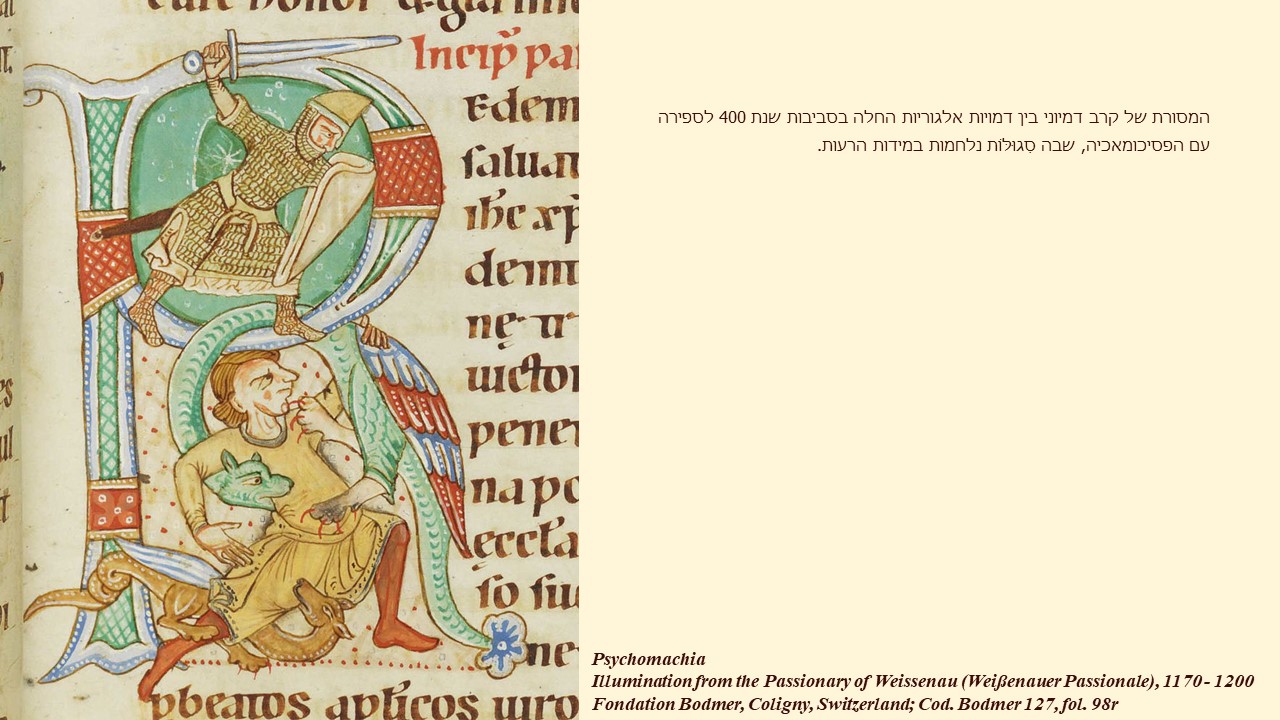 Incip̄ pa
Edem
salua
ih̄c xp̄
deinn
uicto
pene
na pc
ęccła
ne
pbeatos
המסורת של קרב דמיוני בין דמויות אלגוריות החלה בסביבות שנת 400 לספירה
עם הפסיכומאכיה, שבה סְגוּלוֹת נלחמות במידות הרעות.
Psychomachia
Illumination from the Passionary of Weissenau (Weißenauer Passionale), 1170 - 1200
Fondation Bodmer, Coligny, Switzerland; Cod. Bodmer 127, fol. 98r